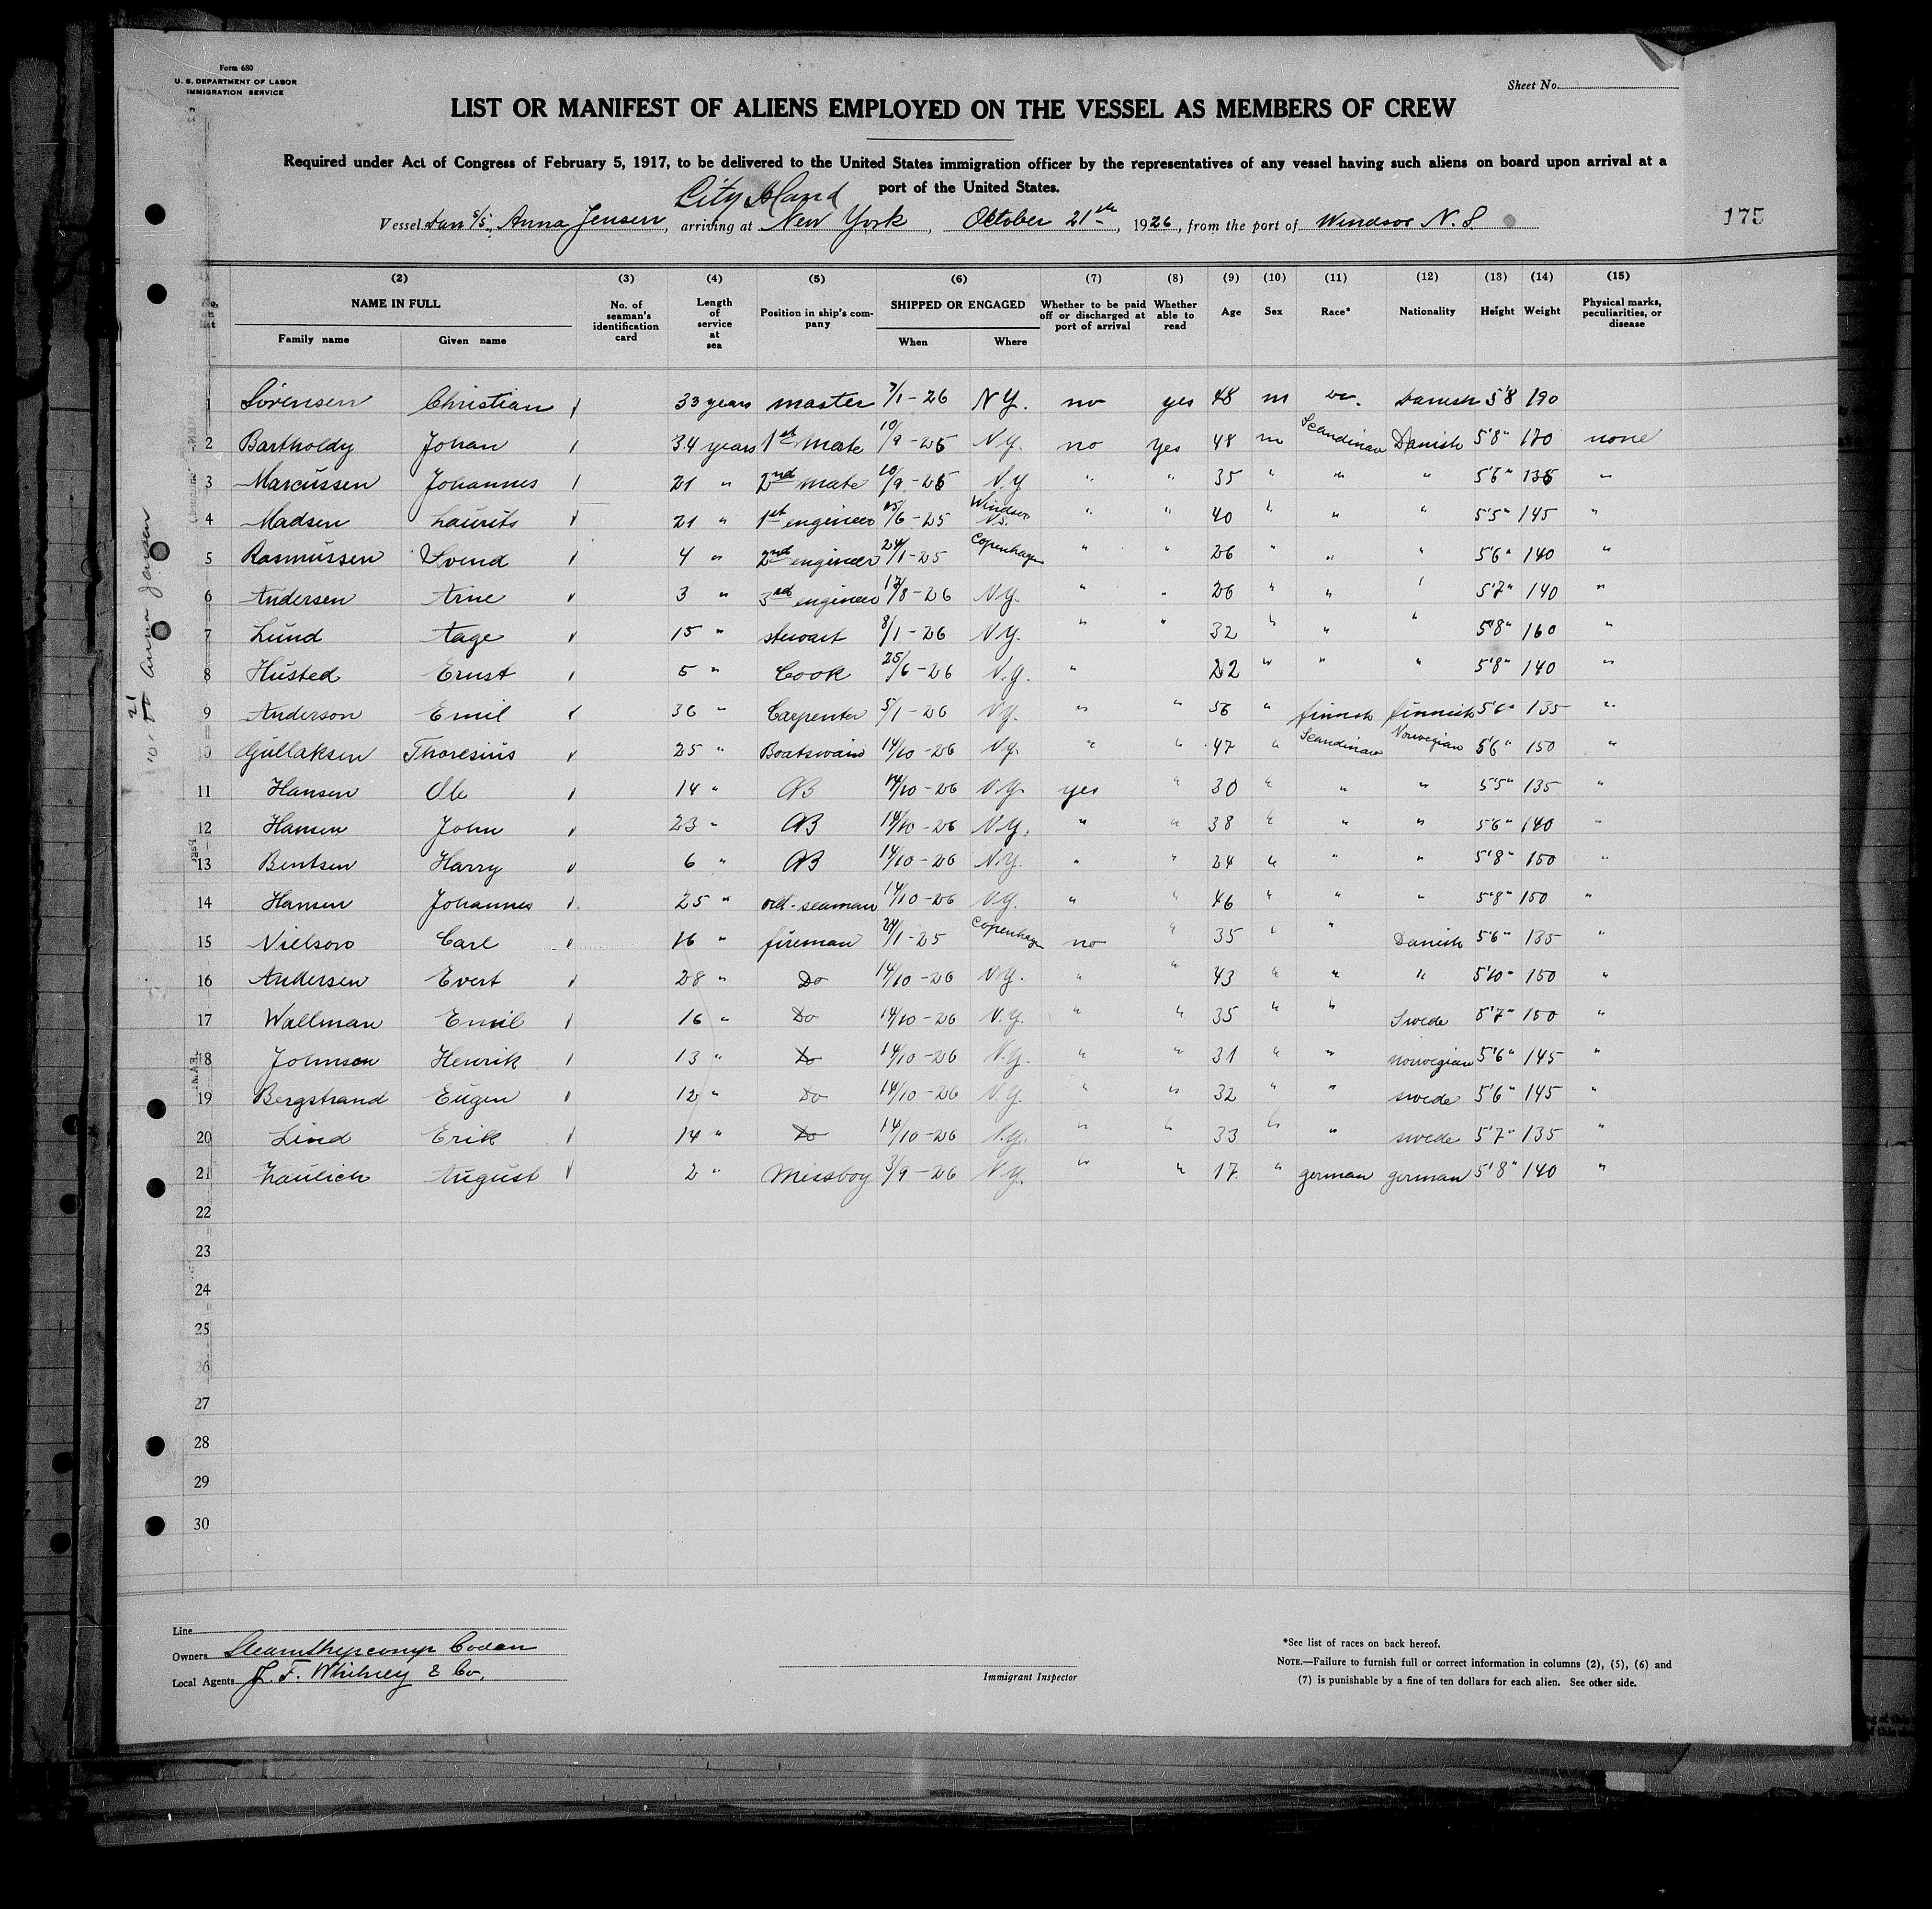 Form 680
U. S. DEPARTMENT OF LABOR
IMMIGRATION SERVICE
Sheet No.
LIST OR MANIFEST OF ALIENS EMPLOYED ON THE VESSEL AS MEMBERS OF CREW
Required under Act of Congress of February 5, 1917, to be delivered to the United States immigration officer by the representatives of any vessel having such aliens on board upon arrival at a
port of the United States.
City Island
Vessel Dan S/S. Anna Jensen, arriving at New York, October 21st, 1926, from the port of Windsor N.S.
175
(2) (3) (4) (5) (6) (7) (8) (9) (10) (11) (12) (13) (14) (15)
No. on list NAME IN FULL Family name Given name No. of seaman's identification card Length of service at sea Position in ship's company SHIPPED OR ENGAGED When Where Whether to be paid off or discharged at port of arrival Whether able to read Age Sex Race* Nationality Height Weight Physical marks, peculiarities, or disease
1 Sörensen Christian 33 years master 7/1-26 N.Y. no yes 48 m Danish 5'8 190
2 Bartholdy Johan 34 years 1st mate 10/9-26 N.Y. no yes 48 m Scandinav Danish 5'8" 170 none
3 Marcussen Johannes 21 " 2nd mate 10/9-26 N.Y " " 35 " " " 5'6" 136 "
4 Madsen Laurits 21 " 1st engineer 15/6-25 Windsor N.S. " " 40 " " " 5'5" 145 "
5 Rasmussen Svend 4 " 2nd engineer 24/1-25 Copenhagen " " 26 " " " 5'6" 140 "
6 Andersen Arne 3 " 3rd engineer 17/8-26 N.Y. " " 26 " " " 5'7" 140 "
7 Lund Aage 15 " stewart 8/1-26 N.Y. " " 32 " " " 5'8" 160 "
8 Husted Ernst 5 " Cook 25/6-26 N.Y. " 22 " " " 5'8" 140 "
9 Anderson Emil 36 " Carpenter 5/1-26 N.Y. " " 56 " finnish finnish 5'6" 135 "
10 Gullaksen Thoresius 25 " Boatswain 14/10-26 N.Y. " " 47 " Scandinav Norwegian 5'6" 150 "
11 Hansen Ole 14 " AB 14/10-26 N.Y. yes " 30 " " " 5'5" 135 "
12 Hansen John 23 " AB 14/10-26 N.Y. " " 38 " " " 5'6" 140 "
13 Bentsen Harry 6 " AB 14/10-26 N.Y. " " 24 " " " 5'8" 150 "
14 Hansen Johannes 25 " ord-seaman 14/10-26 N.Y. " " 46 " " " 5'8" 150 "
15 Nielson Carl 16 " fireman 24/1-25 Copenhagen no " 35 " " Danish 5'6" 135 "
16 Andersen Evert 28 " Do 14/10-26 N.Y. " " 43 " " " 5'10" 150 "
17 Wallman Emil 16 " Do 14/10-26 N.Y. " " 35 " " Swede 5'7" 150 "
18 Johnson Henrik 13 " Do 14/10-26 N.Y. " " 31 " " norwegian 5'6" 145 "
19 Bergstrand Eugen 12 " Do 14/10-26 N.Y. " " 32 " " swede 5'6" 145 "
20 Lind Erik 14 " Do 14/10-26 N.Y. " " 33 " " swede 5'7" 135 "
21 August 2 " Messboy 3/9-26 N.Y. " " 17 " german german 5'8" 140 "
22
23
24
25
26
27
28
29
30
Anna Jensen
Line
Owners Steamshipcomp Codan
Local Agents J. F. Whitney & Co.
Immigrant Inspector
*See list of races on back hereof.
NOTE.—Failure to furnish full or correct information in columns (2), (5), (6) and
(7) is punishable by a fine of ten dollars for each alien. See other side.